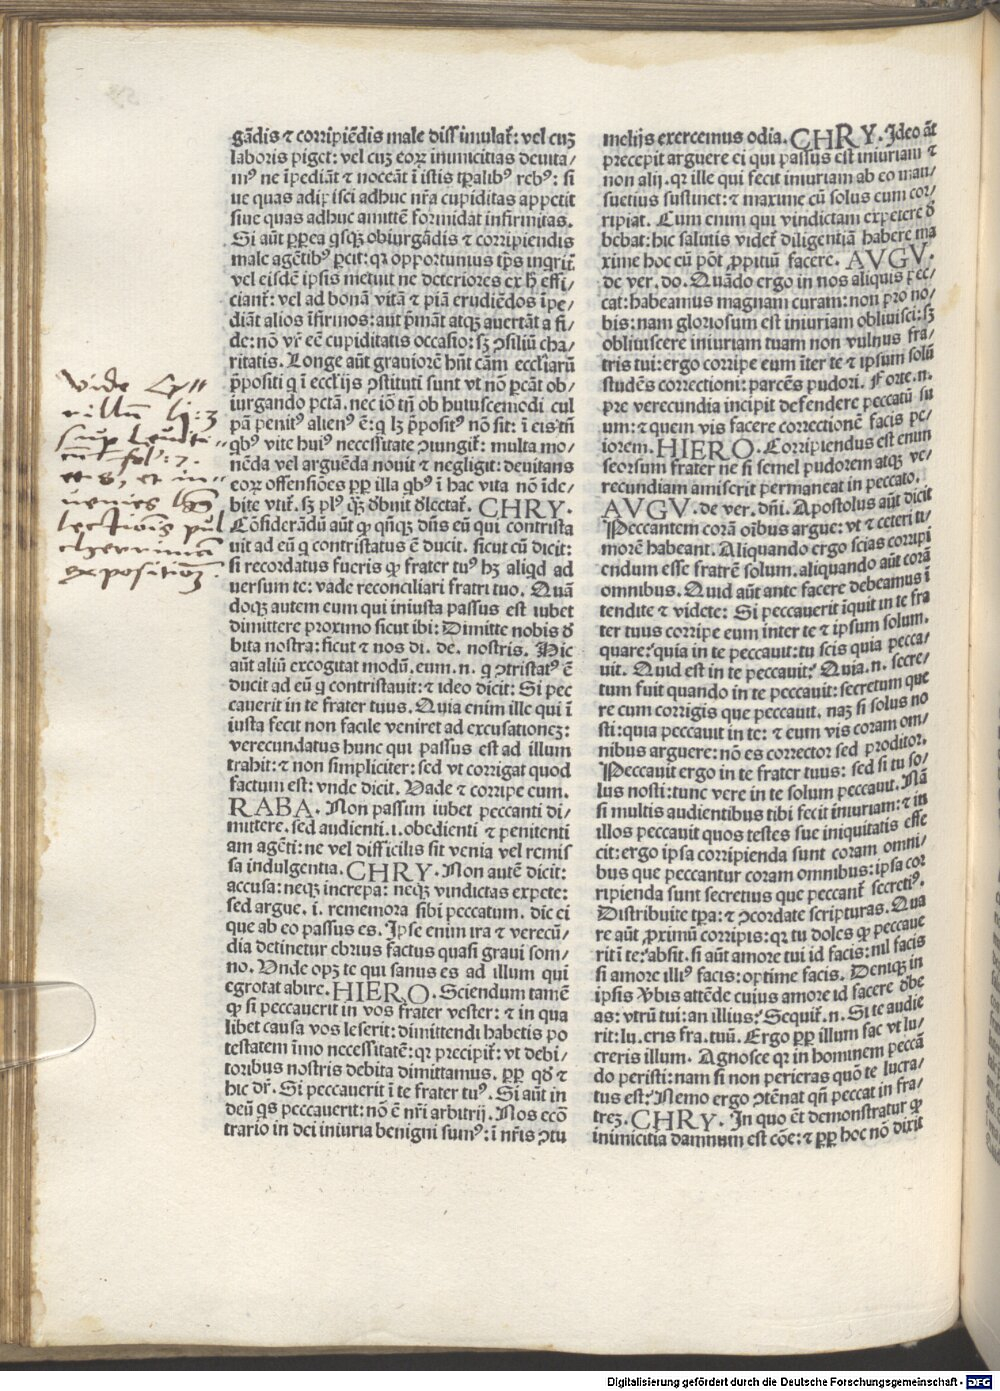 gādis ⁊ corripiēdis male dissimulat̄: vel cuꝫ
laboris piget: vel cuꝫ eoꝝ inimicitias deuita/
mꝰ ne īpediāt ⁊ noceāt ī istis tꝑalibꝰ rebꝰ: si
ue quas adipisci adhuc nr̄a cupiditas appetit
siue quas adhuc amittē formidat infirmitas.
Si aūt ꝓpꝑea qͥsqꝫ obiurgādis ⁊ corripiendis
male agētibꝰ ꝑcit: qꝛ opportunius tp̄s inqrit̄
vel eisdē ipsis metuit ne deteriores ex h̄ effi/
ciant̄: vel ad bonā vitā ⁊ piā erudiēdos īpe/
diāt alios īfirmos: aut p̄māt atqꝫ auertāt a fi/
de: nō vr̄ eē cupiditatis occasio: sꝫ ↄsiliū cha/
ritatis. Longe aūt grauiorē hn̄t cām ecclīarū
p̄positi q̄ ī eccl'ijs ↄstituti sunt vt nō ꝑcāt ob/
iurgando pctā. nec iō tn̄ ob huiuscemodi cul
pā penitꝰ alienꝰ ē: q̄ lꝫ p̄positꝰ nō sit: ī eis tn̄
qͥbꝰ vite huiꝰ necessitate ↄiungit̄: multa mo/
nēda vel arguēda nouit ⁊ negligit: deuitans
eoꝝ offensiōes ꝓpꝑ illa qͥbꝰ ī hac vita nō īde/
bite vtit̄. sꝫ plꝰ qͣꝫ dꝫbuit dꝫlectat̄. CHRY.
Cōsiderādū aūt ꝙ qn̄qꝫ dn̄s eū qui contrista
uit ad eū q̄ contristatus ē ducit. sicut cū dicit:
si recordatus fueris ꝙ frater tuꝰ hꝫ aliqͥd ad
uersum te: vade reconciliari fratri tuo. Quā
doqꝫ autem eum qui iniusta passus est iubet
dimittere proximo sicut ibi: Dimitte nobis dꝫ
bita nostra: sicut ⁊ nos di. de. nostris. Hic
aūt aliū excogitat modū. eum. n. q̄ ↄtristatꝰ ē
ducit ad eū q̄ contristauit: ⁊ ideo dicit: Si pec
cauerit in te frater tuus. Quia enim ille qui ī
iusta fecit non facile veniret ad excusationeꝫ:
verecundatus hunc qui passus est ad illum
trahit: ⁊ non simpliciter: sed vt corrigat quod
factum est: vnde dicit. Vade ⁊ corripe eum.
RABA. Non passim iubet peccanti di/
mittere. sed audienti. i. obedienti ⁊ penitenti
am agēti: ne vel difficilis sit venia vel remis
sa indulgentia. CHRY. Non autē dicit:
accusa: neqꝫ increpa: neqꝫ vindictas expete:
sed argue. i. rememora sibi peccatum. dic ei
que ab eo passus es. Ipse enim ira ⁊ verecū/
dia detinetur ebrius factus quasi graui som/
no. Vnde opꝫ te qui sanus es ad illum qui
egrotat abire. HIERO. Sciendum tamē
ꝙ si peccauerit in vos frater vester: ⁊ in qua
libet causa vos leserit: dimittendi habetis po
testatem īmo necessitatē: qꝛ precipit̄: vt debi/
toribus nostris debita dimittamus. ꝓpꝑ qd̄ ⁊
hic dr̄. Si peccauerit ī te frater tuꝰ. Si aūt in
deū qͥs peccauerit: nō ē nr̄i arbitrij. Nos ecō
trario in dei iniuria benigni sumꝰ: ī nr̄is ↄtu
melijs exercemus odia. CHRY. Ideo āt
precepit arguere ei qui passus est iniuriam ⁊
non alij. qꝛ ille qui fecit iniuriam ab eo man/
suetius sustinet: ⁊ maxime cū solus eum cor/
ripiat. Cum enim qui vindictam expetere dꝫ
bebat: hic salutis videt̄ diligentiā habere ma
xime hoc eū pōt ꝓpitiū facere. AVGV.
de ver. do. Quādo ergo in nos aliquis pec/
cat: habeamus magnam curam: non pro no/
bis: nam gloriosum est iniuriam obliuisci: sꝫ
obliuiscere iniuriam tuam non vulnus fra/
tris tui: ergo corripe eum īter te ⁊ ipsum solū
studēs correctioni: parcēs pudori. Forte. n.
pre verecundia incipit defendere peccatū su
um: ⁊ quem vis facere correctionē facis pe/
iorem. HIERO. Corripiendus est enim
seorsum frater ne si semel pudorem atqꝫ ve/
recundiam amiserit permaneat in peccato.
AVGV. de ver. dn̄i. Apostolus aūt dicit
Peccantem corā oībus argue: vt ⁊ ceteri ti/
morē habeant. Aliquando ergo scias corripi
endum esse fratrē solum. aliquando aūt corā
omnibus. Quid aūt ante facere debeamus ī
tendite ⁊ videte: Si peccauerit īquit in te fra
ter tuus corripe eum inter te ⁊ ipsum solum.
quare? quia in te peccauit: tu scis quia pecca/
uit. Quid est in te peccauit? Quia. n. secre/
tum fuit quando in te peccauit: secretum que
re cum corrigis que peccauit. naꝫ si solus no
sti: quia peccauit in te: ⁊ eum vis coram om/
nibus arguere: nō es corrector sed proditor.
Peccauit ergo in te frater tuus: sed si tu so/
lus nosti: tunc vere in te solum peccauit. Nā
si multis audientibus tibi fecit iniuriam: ⁊ in
illos peccauit quos testes sue iniquitatis effe
cit: ergo ipsa corripienda sunt coram omni/
bus que peccantur coram omnibus: ipsa cor
ripienda sunt secretius que peccant̄ secretiꝰ.
Distribuite tꝑa: ⁊ ↄcordate scripturas. Qua
re aūt ꝓximū corripis: qꝛ tu doles ꝙ peccaue
rit ī te? absit. si aūt amore tui id facis: nil facis
si amore illiꝰ facis: optime facis. Deniqꝫ in
ipsis v̄bis attēde cuius amore id facere dꝫbe
as: vtrū tui: an illius? Sequit̄. n. Si te audie
rit: lu. eris fra. tuū. Ergo ꝓpꝑ illum fac vt lu/
creris illum. Agnosce qꝛ in hominem peccā
do peristi: nam si non perieras quō te lucra/
tus est? Nemo ergo ↄtēnat qn̄ peccat in fra/
treꝫ. CHRY. In quo ēt demonstratur ꝙ
inimicitia damnum est cōe: ⁊ ꝓpꝑ hoc nō dixit
Vide Cy//
rillū li: 3
sup Leuiti//
cū fol: 7.
et 8, et in//
uenies
lectionis pul
cherrimā
expositionē.
Digitalisierung gefördert durch die Deutsche Forschungsgemeinschaft - DFG